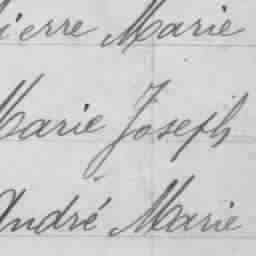 Pierre Marie
Marie Joseph
André Marie